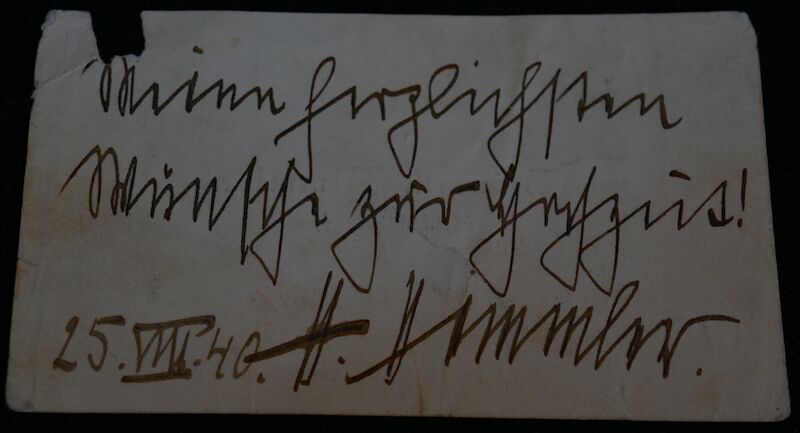 Meine herzlichsten
Wünsche zur Hochzeit!
25.VIII.40. H. Himmler.